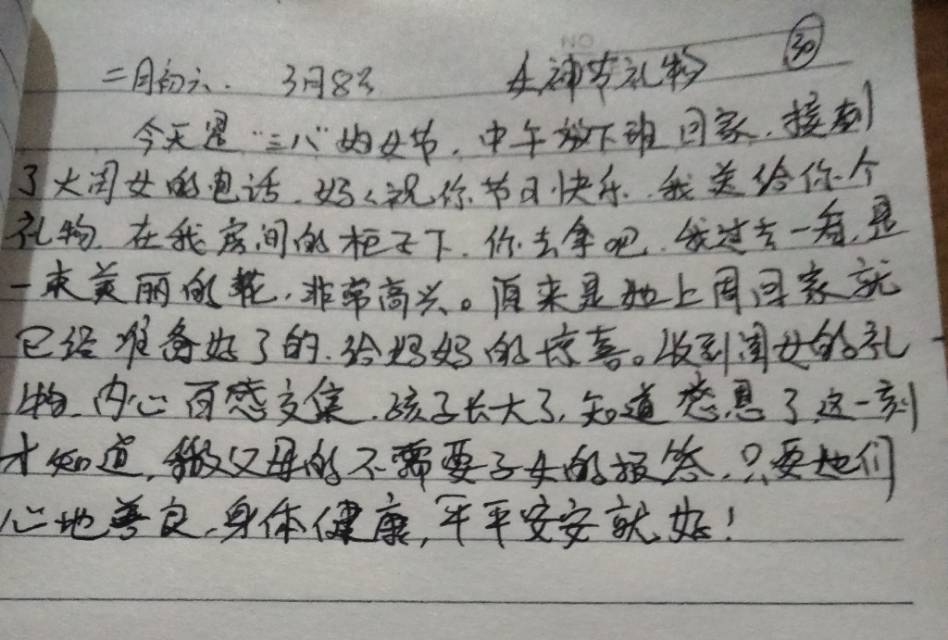 二月初六. 3月8号 女神节礼物 30
今天是“三八”妇女节,中午放下班回家,接到
了大闺女的电话,妈妈祝你节日快乐,我送给你个
礼物,在我房间的柜子下,你去拿吧,我过去一看,是
一束美丽的花,非常高兴。原来是她上周回家就
已经准备好了的,给妈妈的惊喜。收到闺女的礼
物,内心百感交集,孩子长大了,知道感恩了,这一刻
才知道,做父母的不需要子女的报答,只要她们
心地善良,身体健康,平平安安就好!